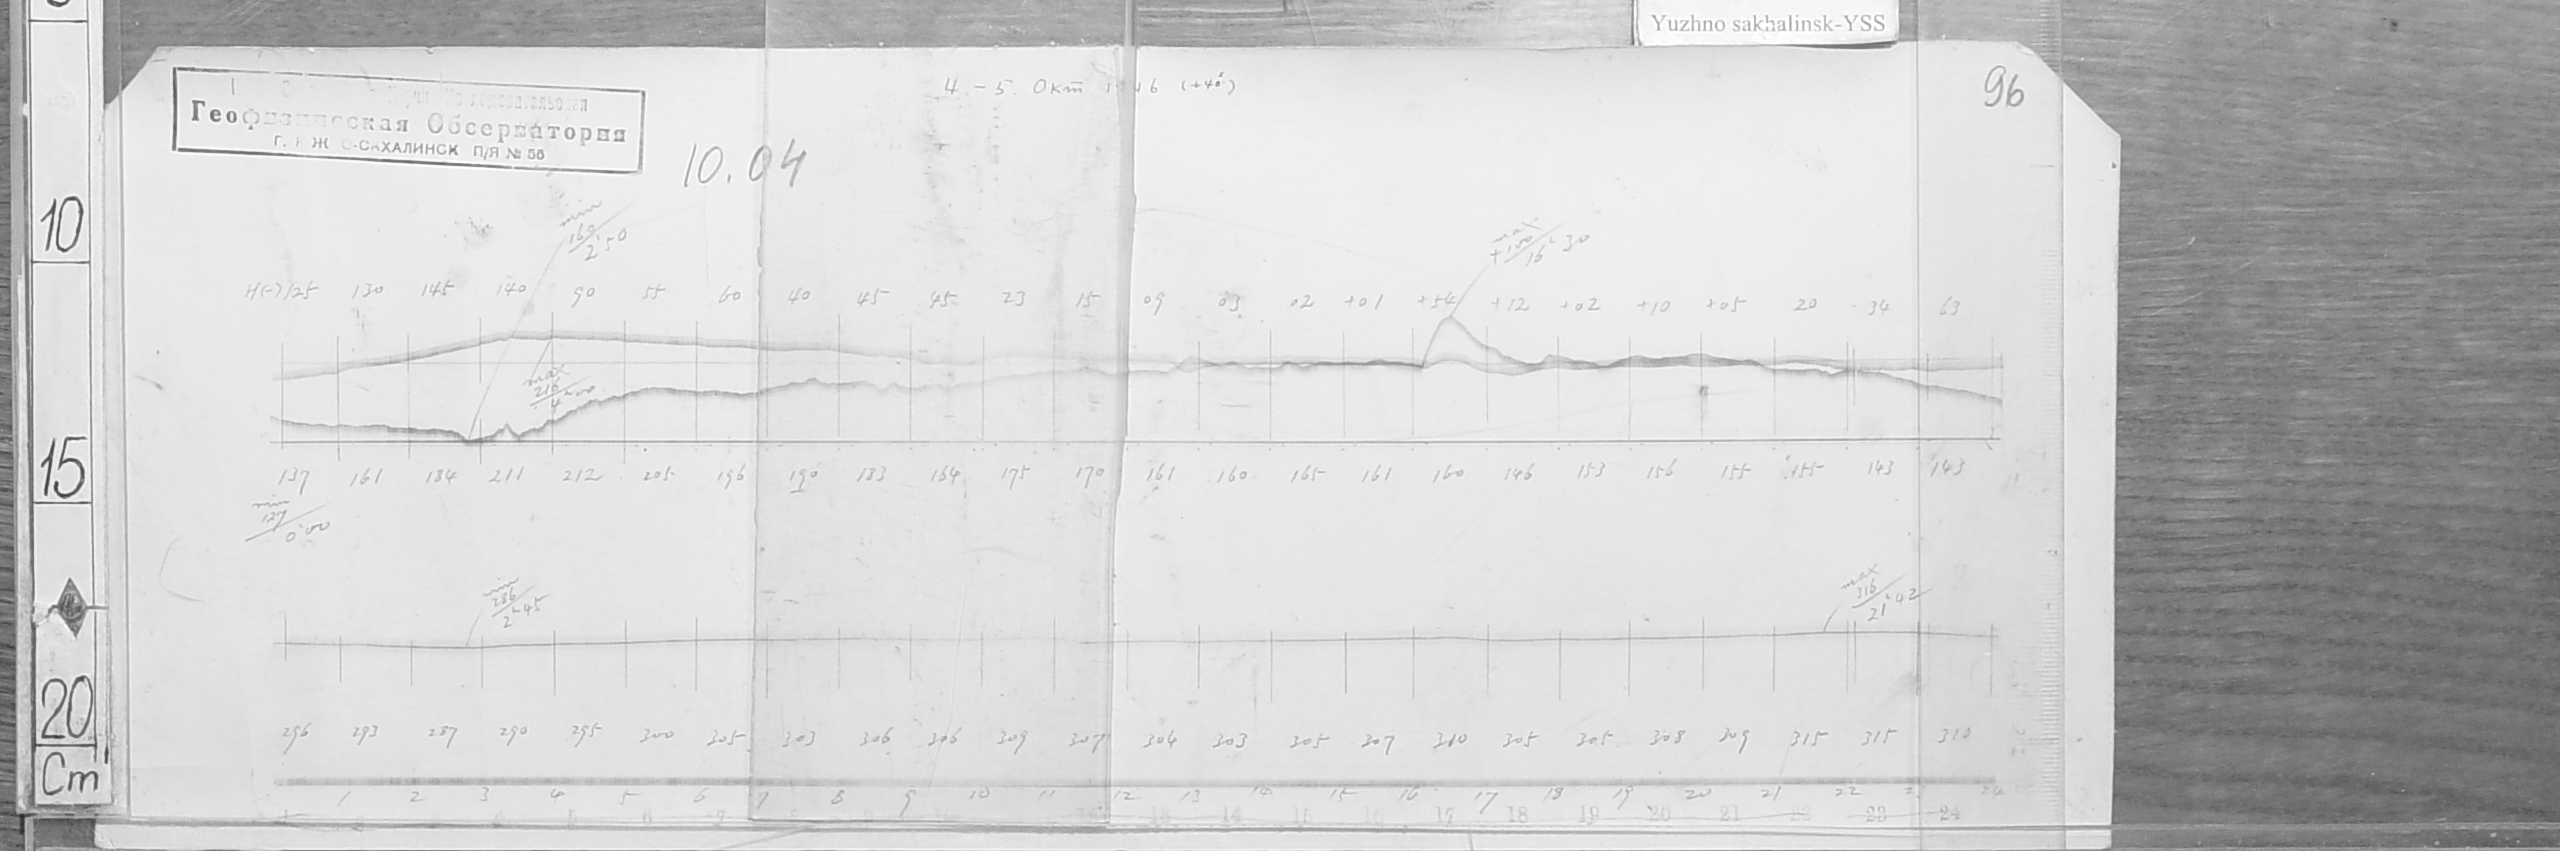 Yuzhno sakhalinsk-YSS
96
4 - 5. Окт (+40)
Геофизическая Обсерватория
-САХАЛИНСК П/Я № 56
10.04
min
160
2 50
max
+100
16 30
H(-) 125 130 145 140 90 55 60 40 45 45 23 15 09 03 02 +01 +54 +12 +02 +10 +05 20 -34 63
max
216
4 00
137 161 184 211 212 205 196 190 183 164 175 170 161 160 165 161 160 146 153 156 155 155 143 143
min
127
0 00
min
286
2 45
max
316
21 42
296 293 287 290 295 300 305 303 306 306 309 307 304 303 305 307 310 305 305 308 309 315 315 310
1 2 3 4 5 6 7 8 9 10 11 12 13 14 15 16 17 18 19 20 21 22 24
14 17 18 19 20 21 22 23 24
10
15
20
Cm